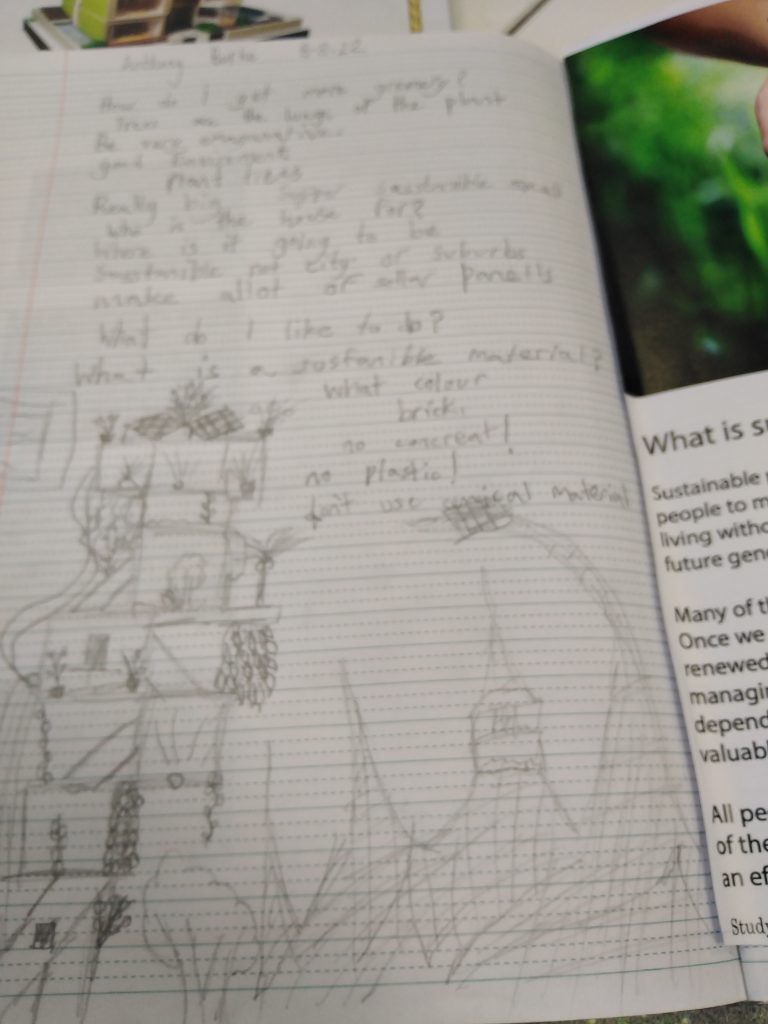 Anthony 8-2-22
How do I get more greenery?
Trees are the lungs of the plant
Be very
good
Plant trees
Really big, super small
Who is the house for?
Where is it going to be
not city or suburbs
make allot of solar panells
What do I like to do?
What is a sustanible material?
What colour
brick.
no concreat!
no plastic!
don't use material
What is su
Sustainable
people to m
living witho
future gene
Many of th
Once we
renewed
managin
depend
valuabl
All pe
of the
an ef
Study